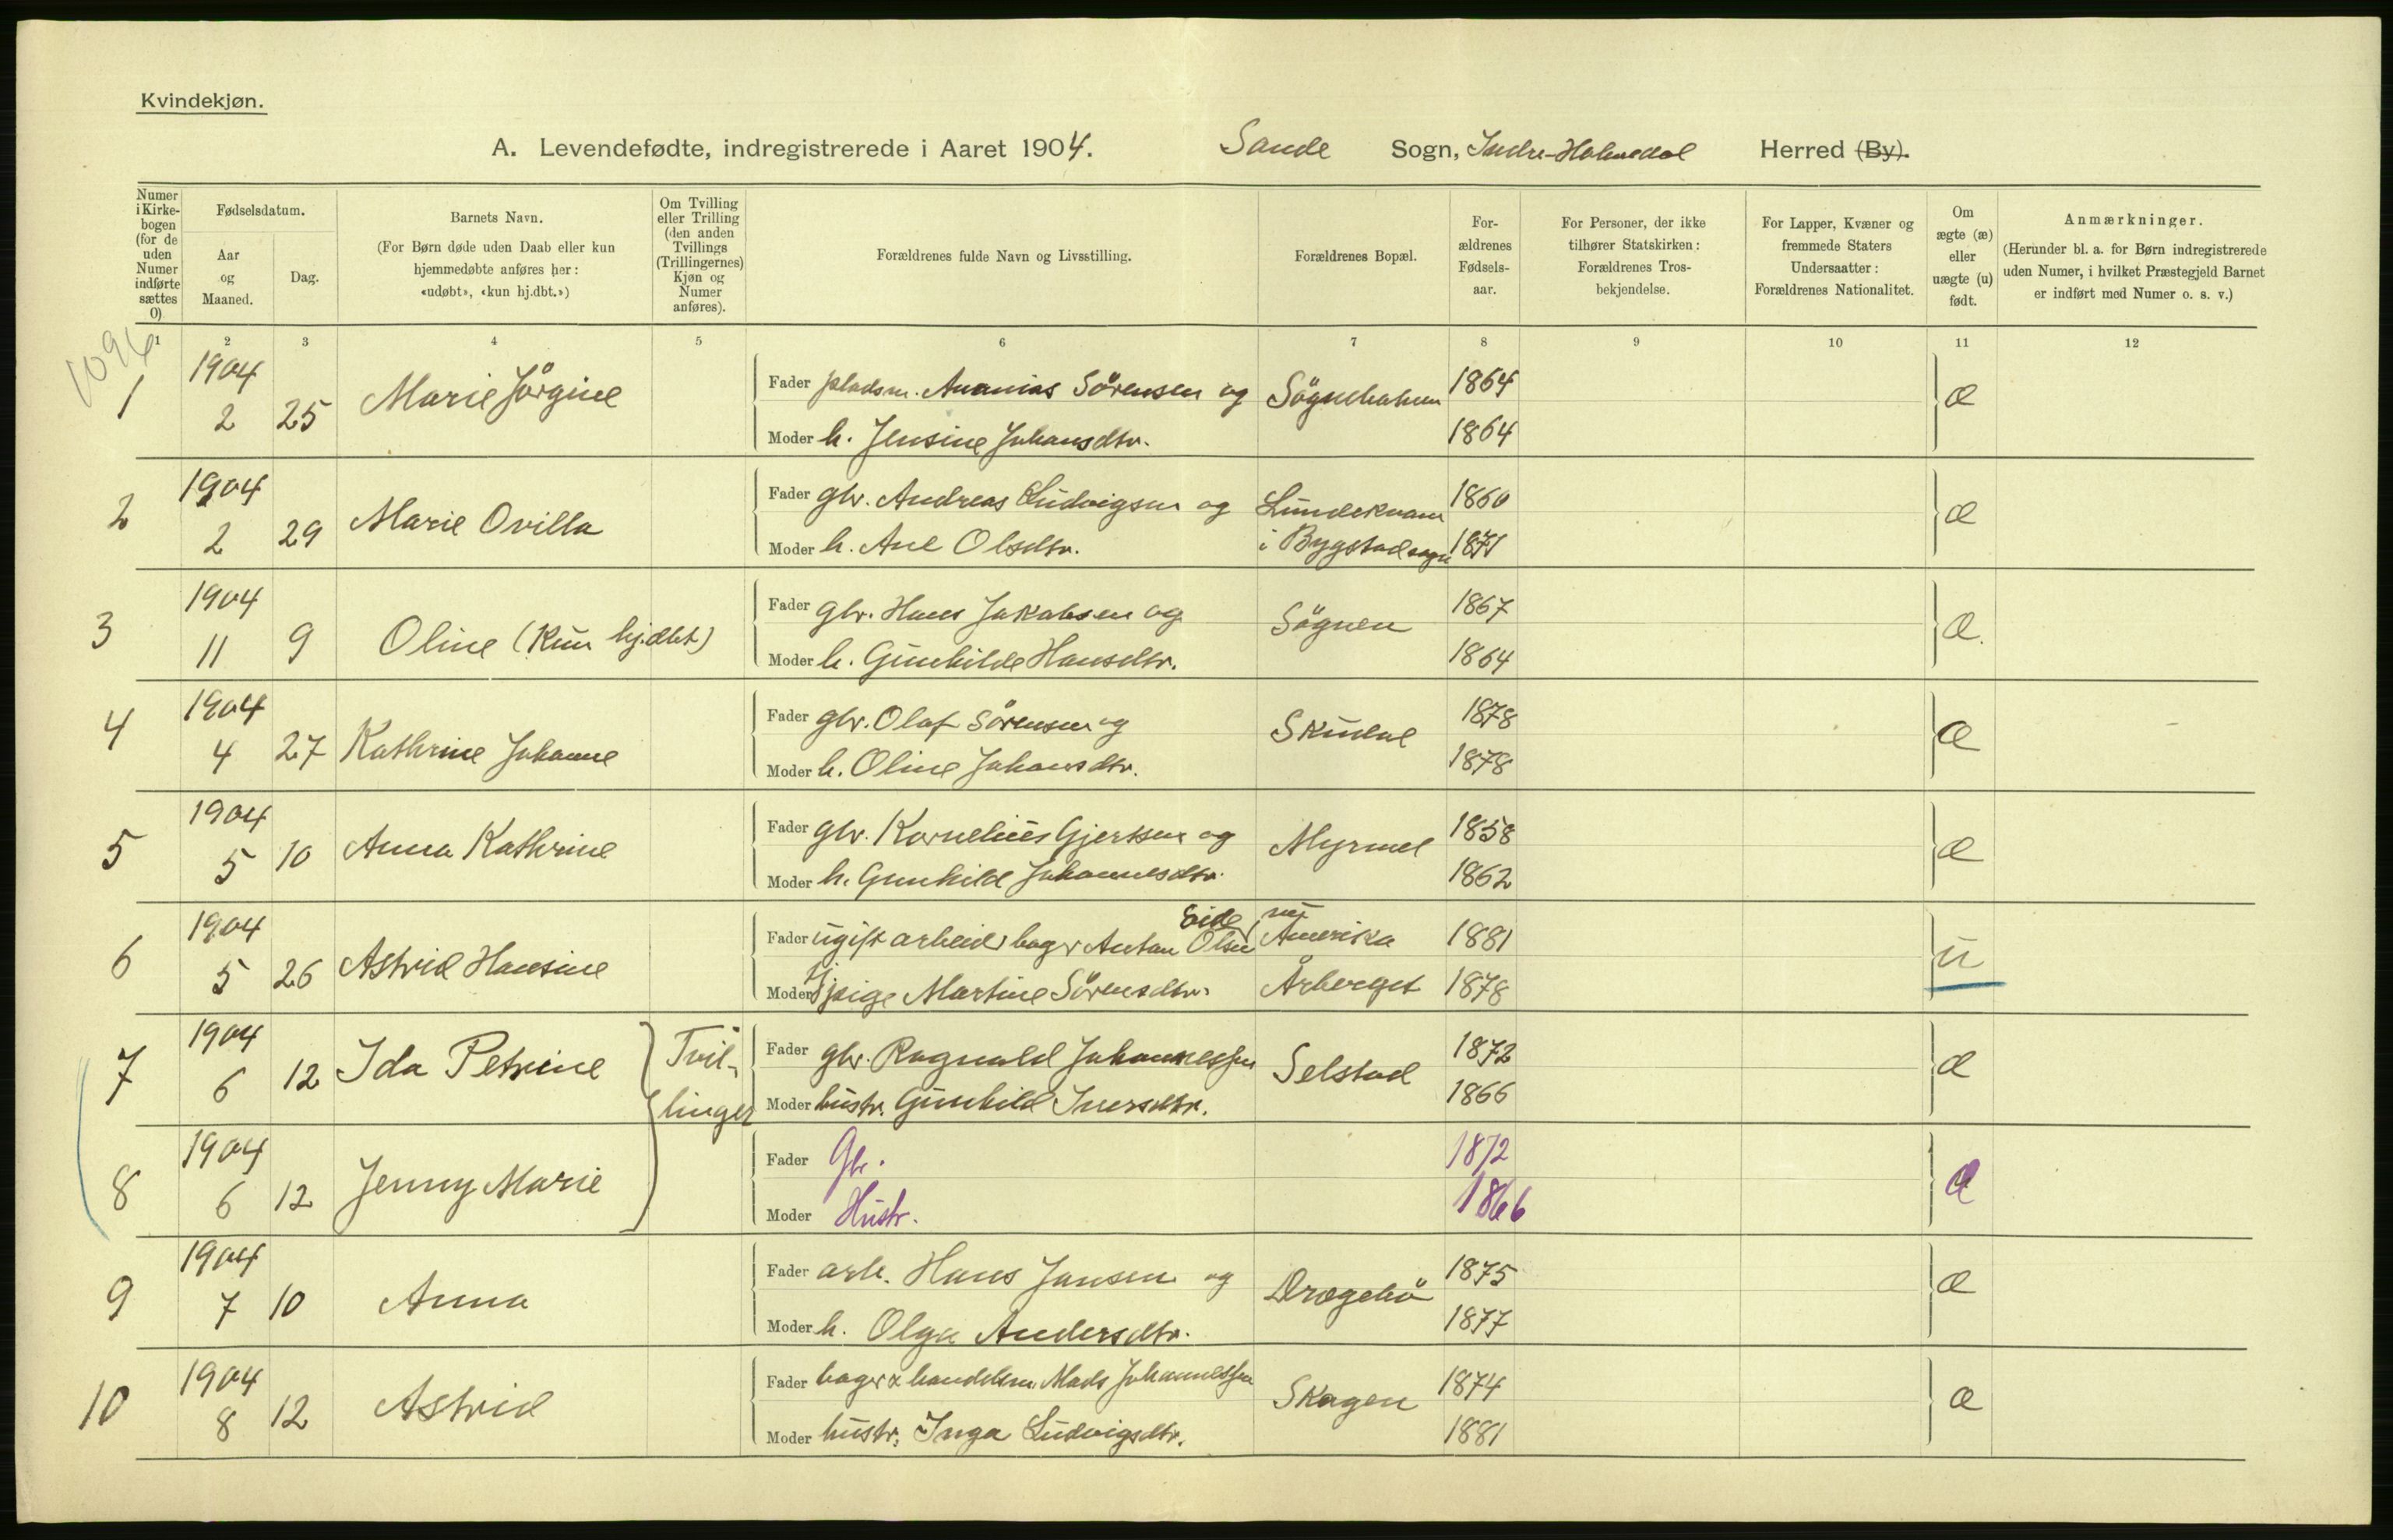 Kvindekjøn.
A. Levendefødte, indregistrerede i Aaret 1904. Sande Sogn, Indre-Holmedal Herred (By).
Numer i Kirke-bogen (for de uden Numer indførte sættes 0)
Fødselsdatum.
Aar og Maaned.
Dag.
Barnets Navn.
(For Børn døde uden Daab eller kun hjemmedøbte anføres her: «udøbt», «kun hj.dbt.»)
Om Tvilling eller Trilling (den anden Tvillings (Trillingernes) Kjøn og Numer anføres).
Forældrenes fulde Navn og Livsstilling.
Forældrenes Bopæl.
For-ældrenes Fødsels-aar.
For Personer, der ikke tilhører Statskirken: Forældrenes Tros-bekjendelse.
For Lapper, Kvæner og fremmede Staters Undersaatter: Forældrenes Nationalitet.
Om ægte (æ) eller uægte (u) født.
Anmærkninger.
(Herunder bl. a. for Børn indregistrerede uden Numer, i hvilket Præstegjeld Barnet er indført med Numer o. s. v.)
1 2 3 4 5 6 7 8 9 10 11 12
1096
1 1904 2 25 Marie Jörgine Fader pladsm. Ananias Sörensen og Sögneholmen 1864 æ
Moder h. Jensine Johansdtr. 1864
2 1904 2 29 Marie Ovilla Fader gbr. Andreas Ludvigsen og Lundekvam 1860 æ
Moder h. Ane Olsdtr. i Bygstad sogn 1871
3 1904 11 9 Oline (kun hj.dbt) Fader gbr. Hans Jakobsen og Sögnen 1867 æ.
Moder h. Gunhilde Hansdtr. 1864
4 1904 4 27 Kathrine Johanne Fader gbr. Olaf Sörensen og Skudal 1878 æ
Moder h. Oline Johansdtr. 1878
5 1904 5 10 Anna Kathrine Fader gbr. Kornelius Gjertsen og Myrmel 1858 æ
Moder h. Gunhild Johannesdtr. 1862
6 1904 5 26 Astrid Hansine Fader ugift arbeid bager Anton Olsen Eide nu Amerika 1881 u
Moder pige Martine Sörensdtr. Årberget 1878
7 1904 6 12 Ida Petrine Tvil- Fader gbr. Ragnald Johannessen Selstad 1872 æ
linger Moder hustr. Gunhild Iversdtr. 1866
8 1904 6 12 Jenny Marie Fader Gbr. 1872 æ
Moder Hustr. 1866
9 1904 7 10 Anna Fader arb. Hans Jansen og Drægebö 1875 æ
Moder h. Olga Andersdtr. 1877
10 1904 8 12 Astrid Fader bager & handelsm. Mads Johannessen Skagen 1874 æ
Moder hustr. Inga Ludvigsdtr. 1881